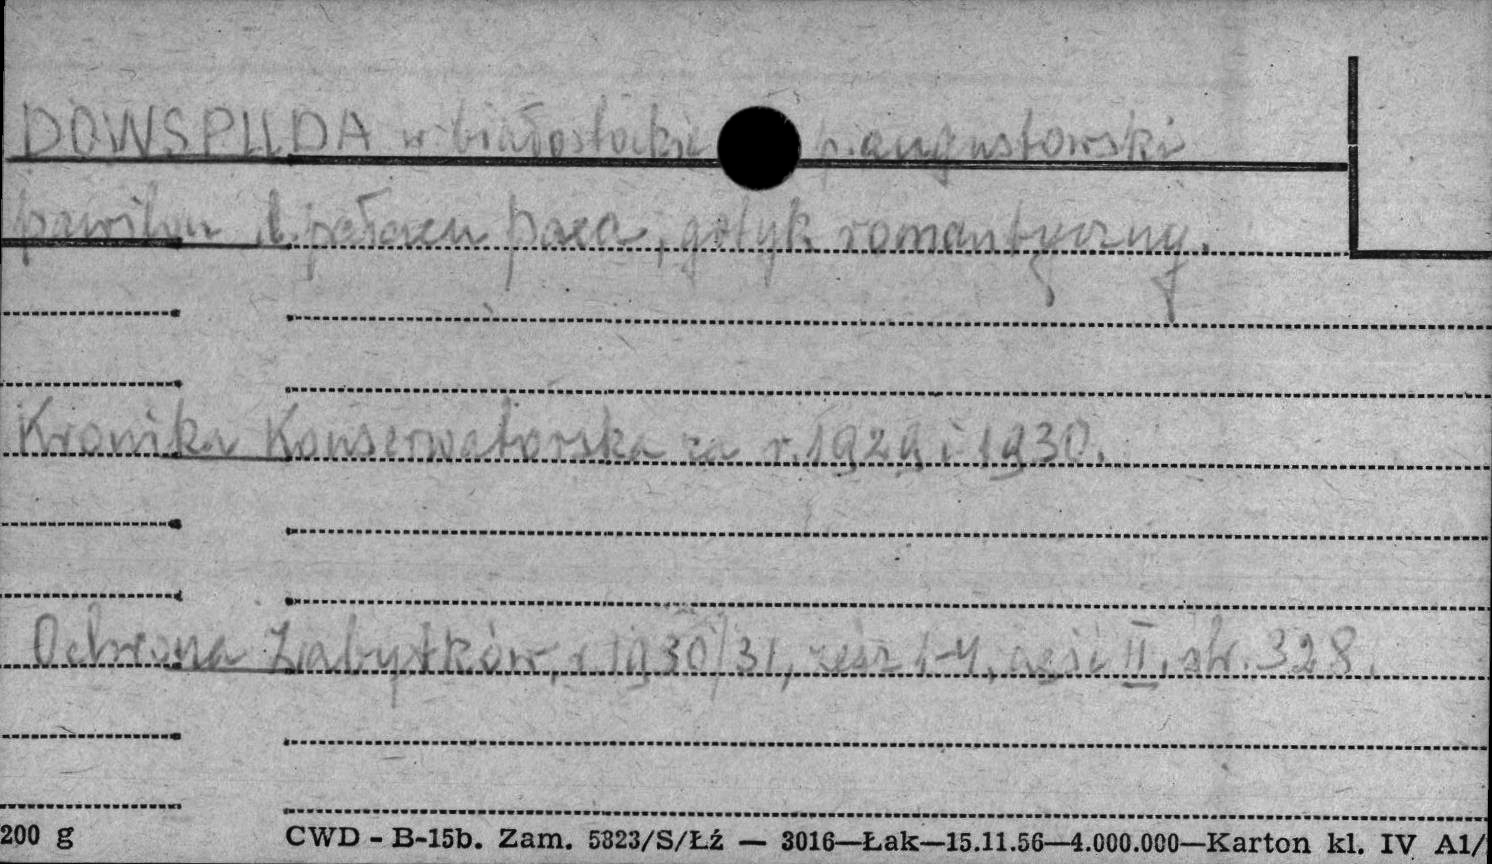 DOWSPUDA w białostockie p. augustowski
pawilon b. pałacu Paca, gotyk romantyczny.
Kronika Konserwatorska za r. 1929 i 1930.
Ochrona Zabytków, r 1930/31, zesz 1-4, część II, str. 328.
200 g CWD - B-15b. Zam. 5823/S/Łź — 3016—Łak—15.11.56—4.000.000—Karton kl. IV A1/